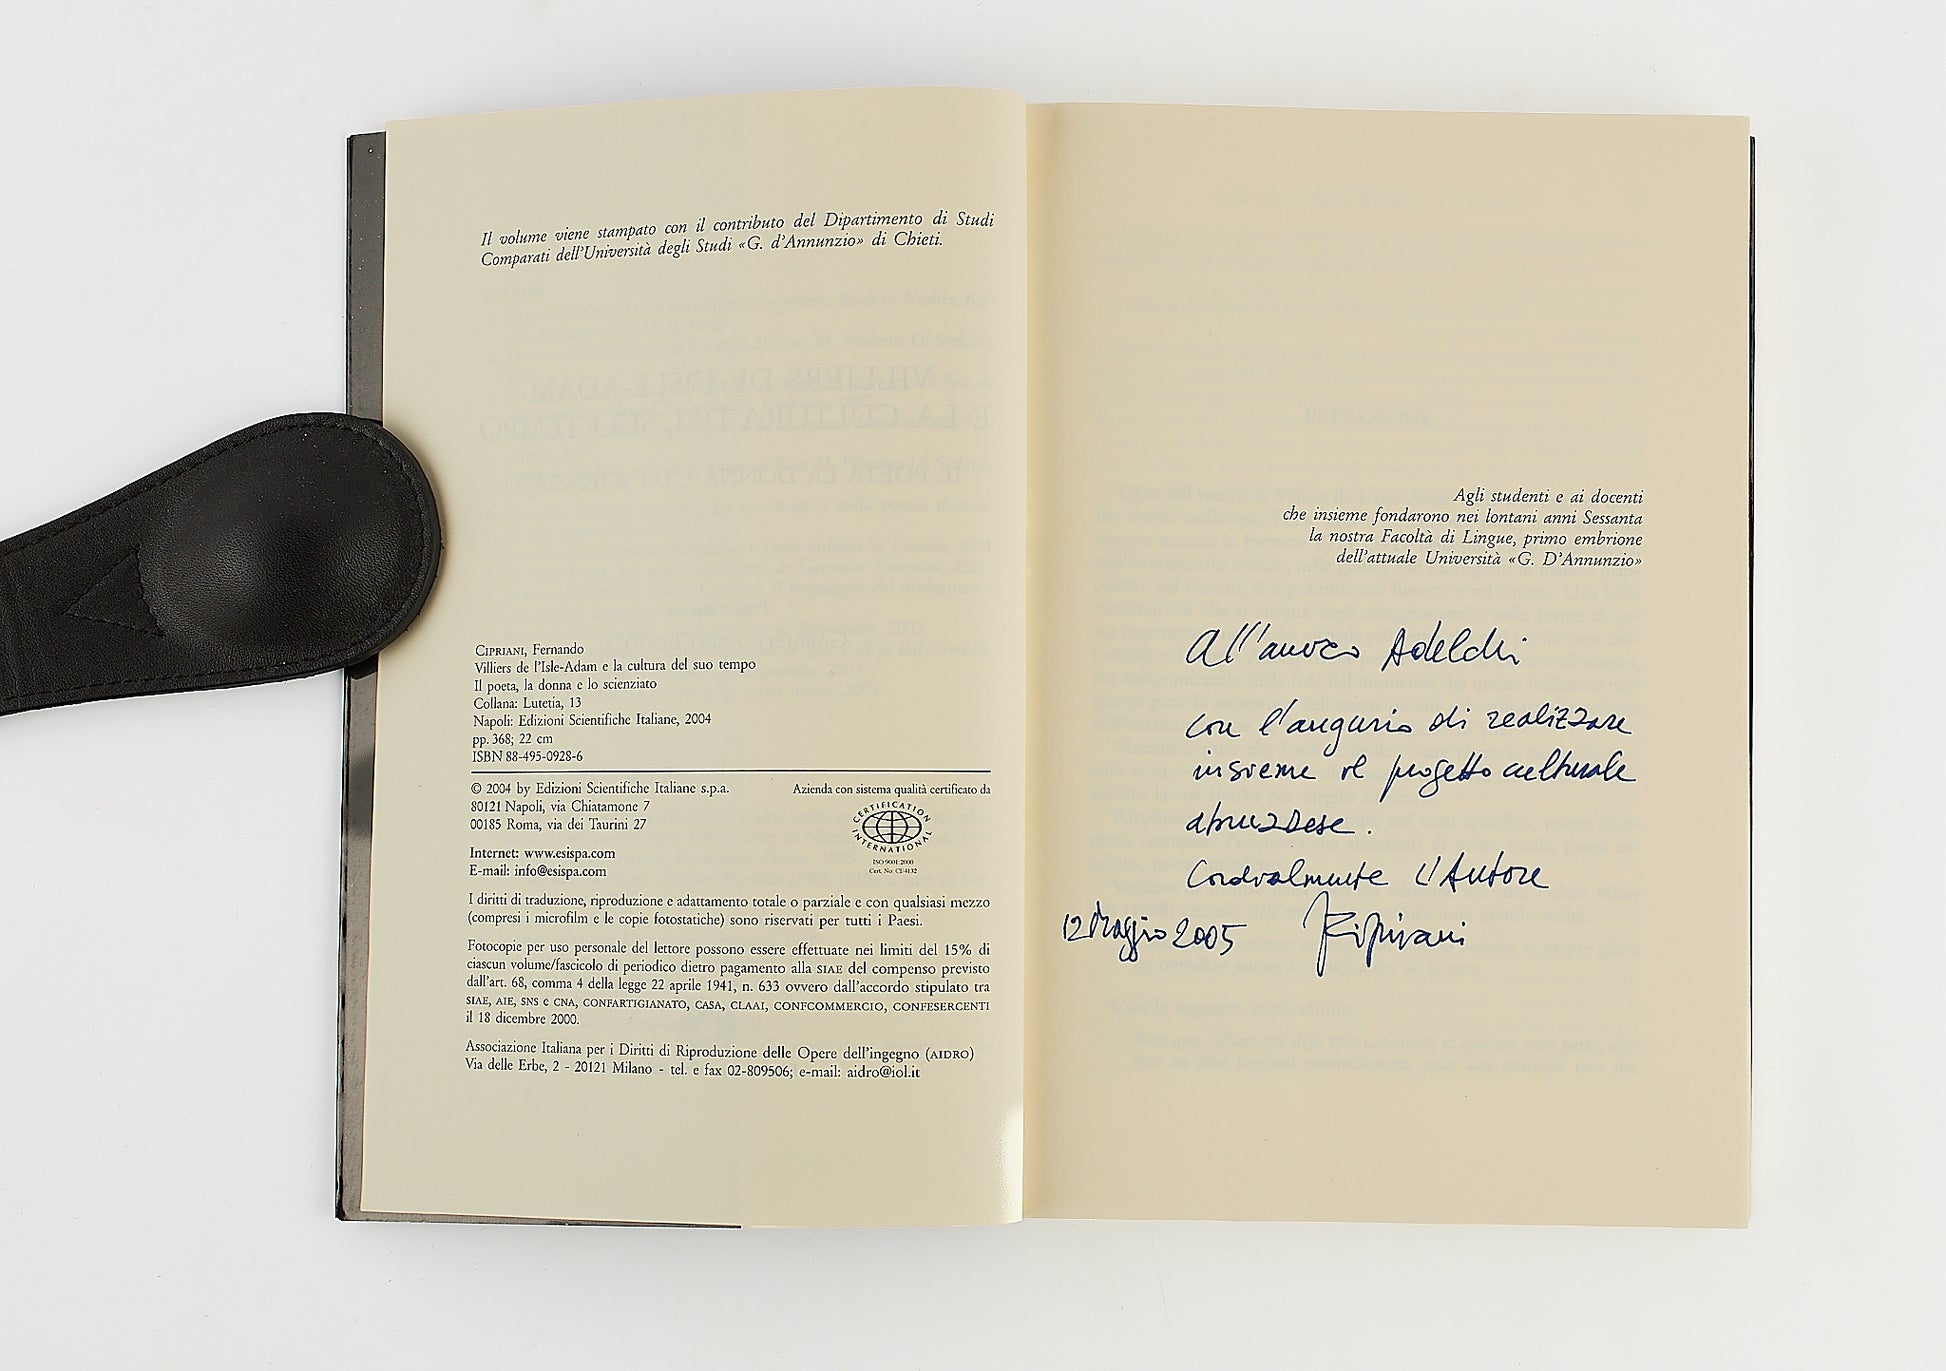 Il volume viene stampato con il contributo del Dipartimento di Studi
Comparati dell'Università degli Studi «G. d'Annunzio» di Chieti.
CIPRIANI, Fernando
Villiers de l'Isle-Adam e la cultura del suo tempo
Il poeta, la donna e lo scienziato
Collana: Lutetia, 13
Napoli: Edizioni Scientifiche Italiane, 2004
pp. 368; 22 cm
ISBN 88-495-0928-6
© 2004 by Edizioni Scientifiche Italiane s.p.a.
80121 Napoli, via Chiatamone 7
00185 Roma, via dei Taurini 27
Internet: www.esispa.com
E-mail: info@esispa.com
Azienda con sistema qualità certificato da
CERTIFICATION
INTERNATIONAL
ISO 9001:2000
Cert. No: CI/4132
I diritti di traduzione, riproduzione e adattamento totale o parziale e con qualsiasi mezzo
(compresi i microfilm e le copie fotostatiche) sono riservati per tutti i Paesi.
Fotocopie per uso personale del lettore possono essere effettuate nei limiti del 15% di
ciascun volume/fascicolo di periodico dietro pagamento alla SIAE del compenso previsto
dall'art. 68, comma 4 della legge 22 aprile 1941, n. 633 ovvero dall'accordo stipulato tra
SIAE, AIE, SNS e CNA, CONFARTIGIANATO, CASA, CLAAI, CONFCOMMERCIO, CONFESERCENTI
il 18 dicembre 2000.
Associazione Italiana per i Diritti di Riproduzione delle Opere dell'ingegno (AIDRO)
Via delle Erbe, 2 - 20121 Milano - tel. e fax 02-809506; e-mail: aidro@iol.it
Agli studenti e ai docenti
che insieme fondarono nei lontani anni Sessanta
la nostra Facoltà di Lingue, primo embrione
dell'attuale Università «G. D'Annunzio»
All'amico Adelchi
con l'augurio di realizzare
insieme il progetto culturale
abruzzese.
Cordialmente l'Autore
12 Maggio 2005 FCipriani